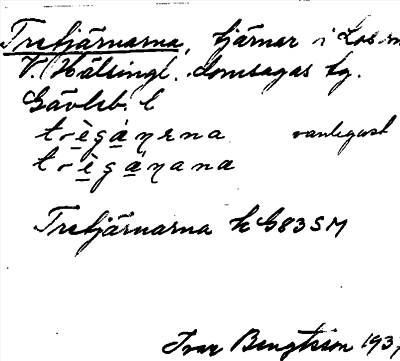 Tretjärnarna, tjärnar i Los sn
V. Hälsingl. domsagas tg.
Gävleb. l
trègánɛna vanligast
trègánana
Tretjärnarna k G83SM
Ivar Bengtsson 1937